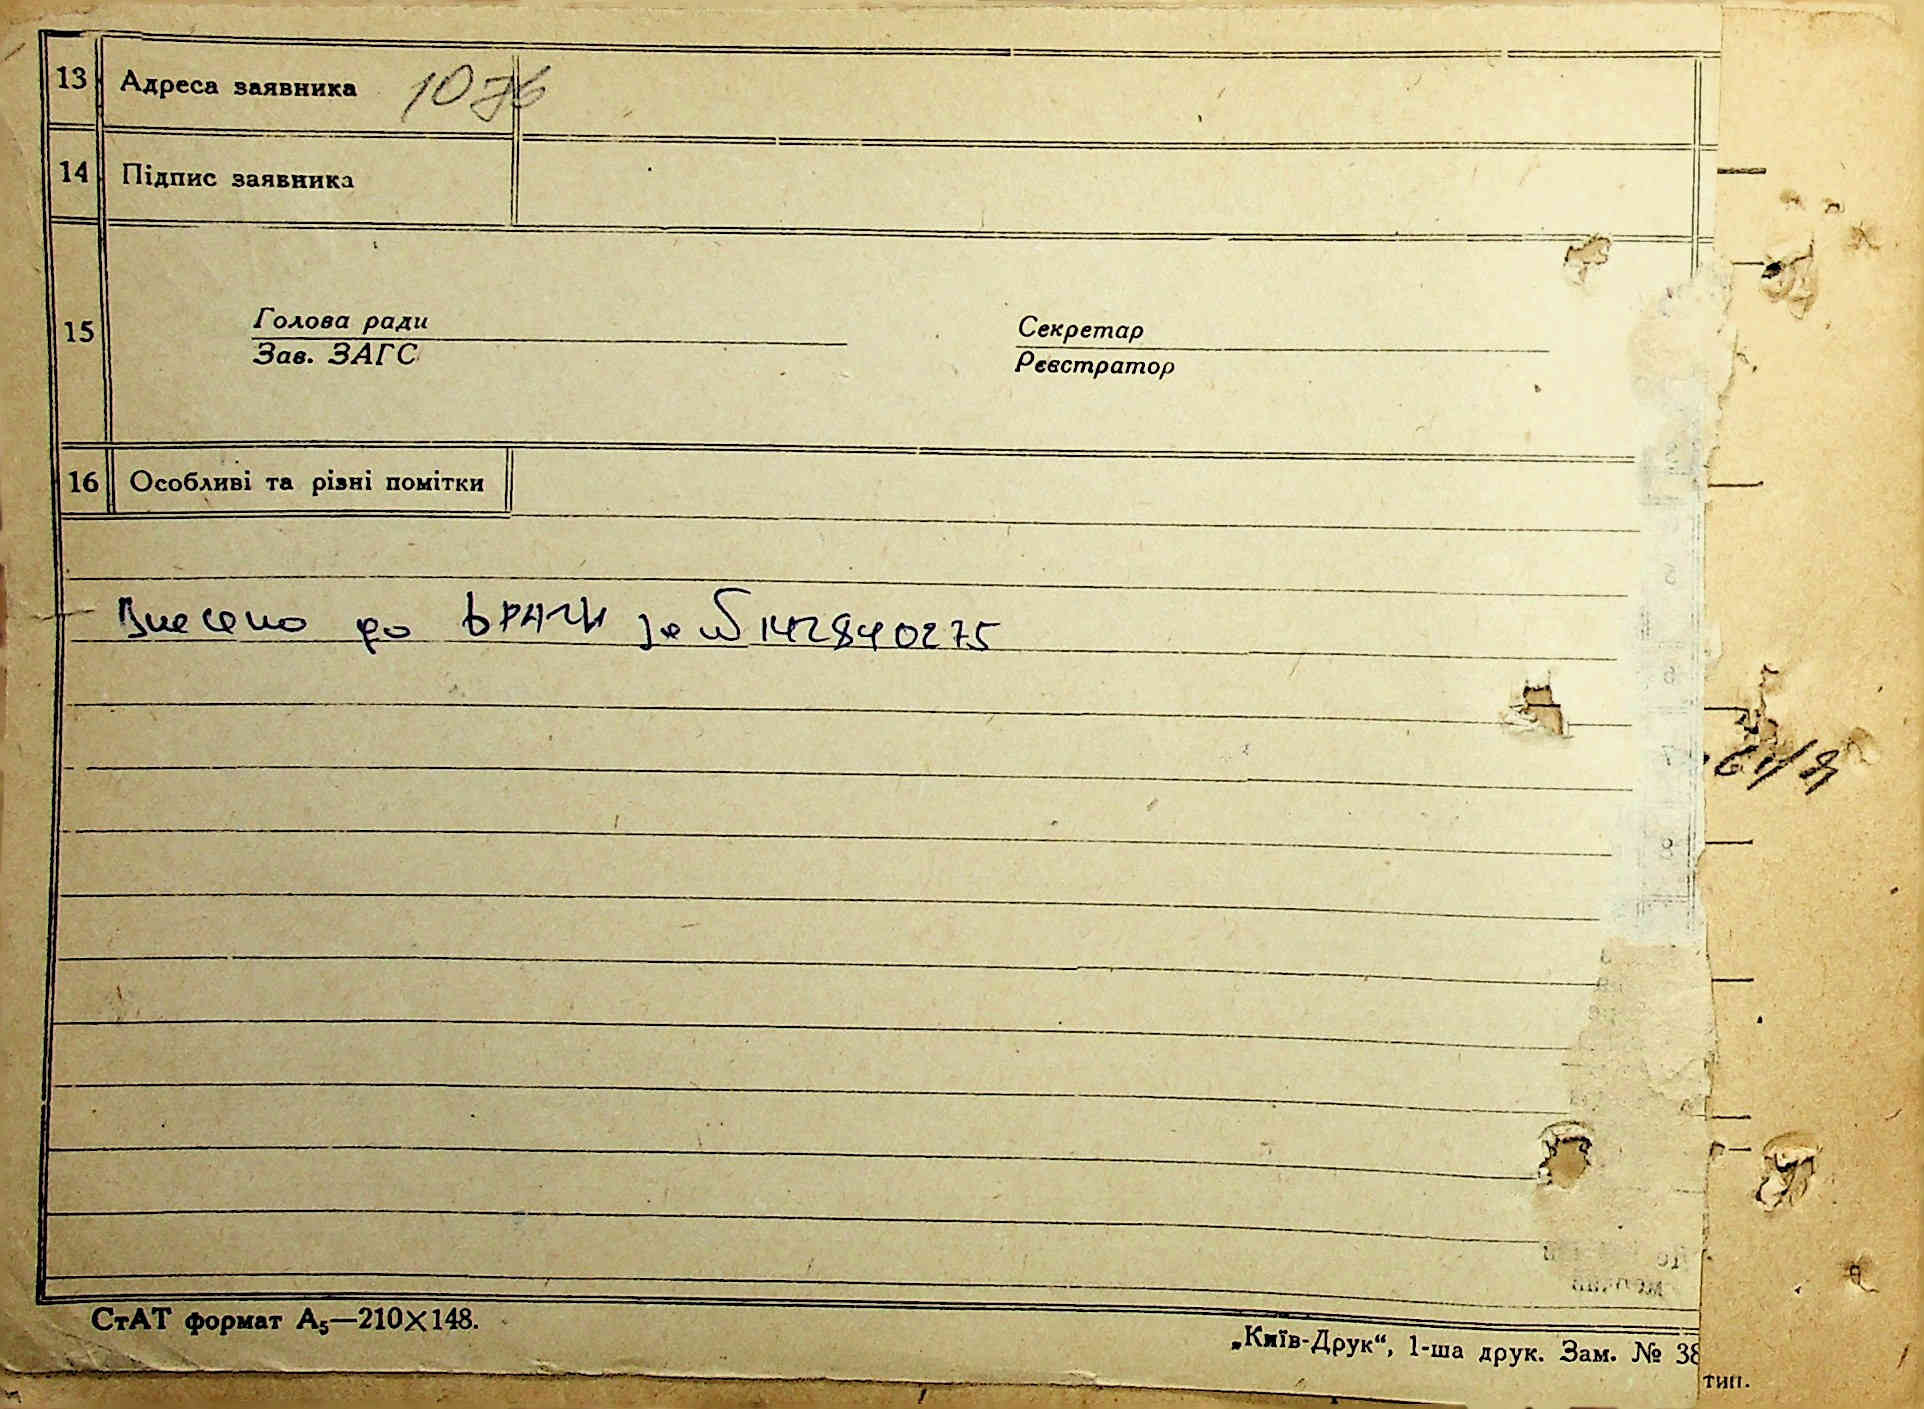 13 Адреса заявника 1076
14 Підпис заявника
15
Голова ради
Зав. ЗАГС
Секретар
Реєстратор
16 Особливі та різні помітки
Внесено до ДРАЦС за № 142840275
СтАТ формат А₅—210×148.
„Київ-Друк“, 1-ша друк. Зам. № 38
тип.